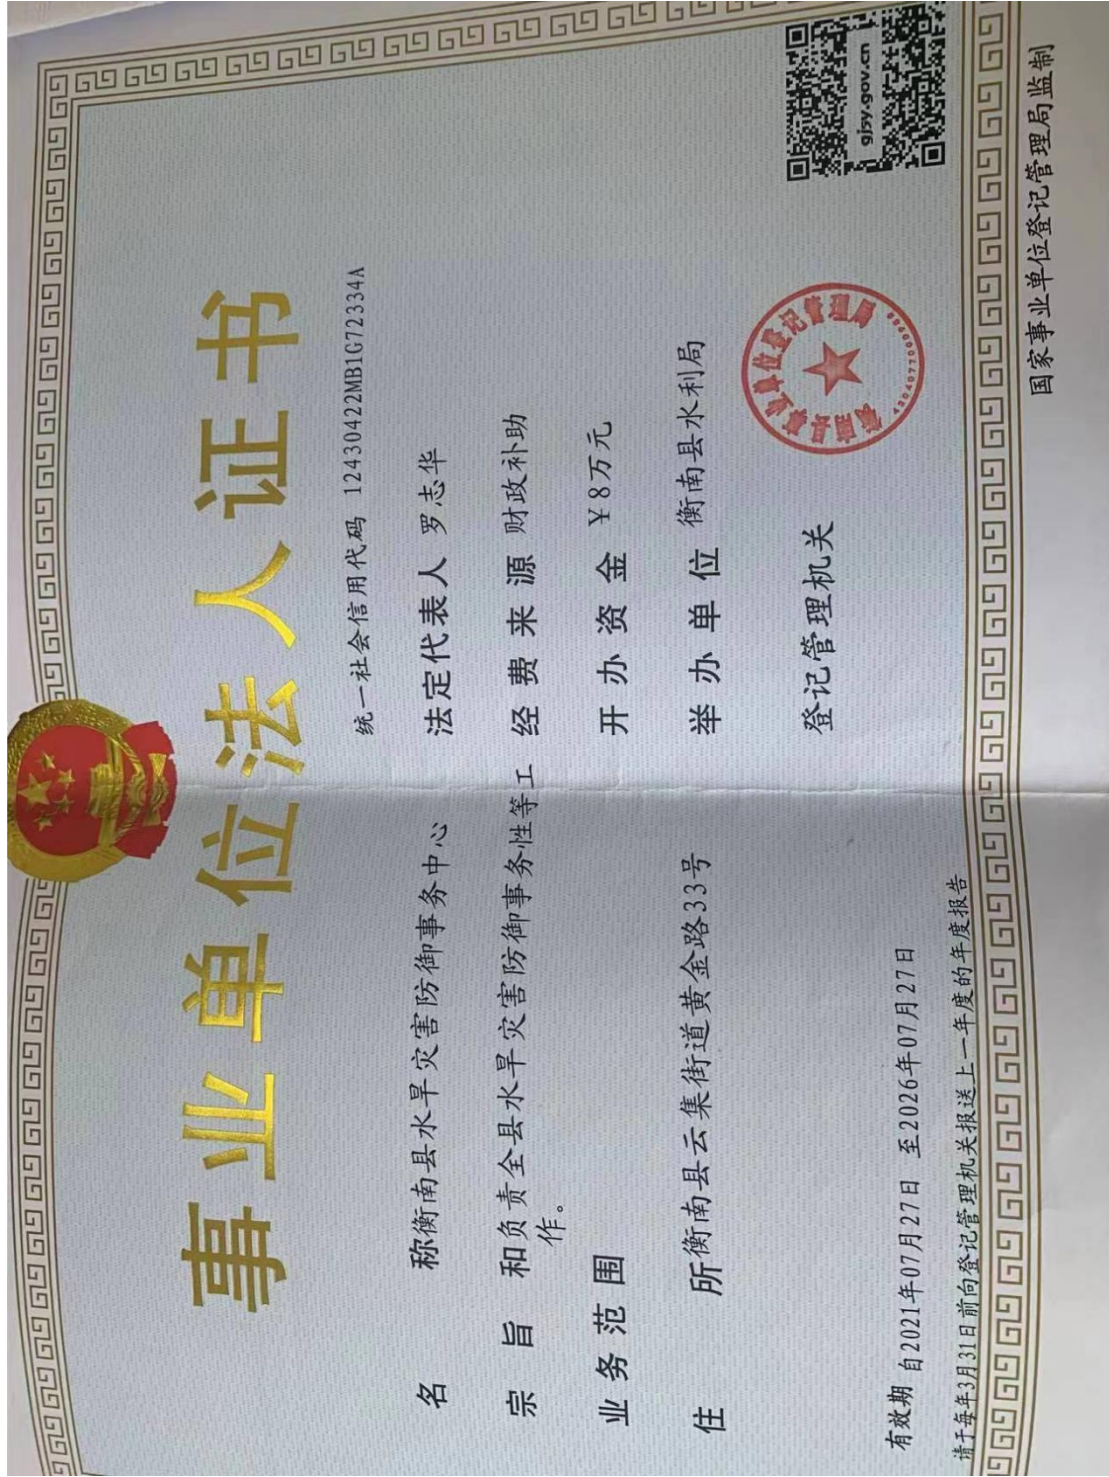 事业单位法人证书
统一社会信用代码 12430422MB1G72334A
名称 衡南县水旱灾害防御事务中心
宗旨和 负责全县水旱灾害防御事务性等工
业务范围 作。
住所 衡南县云集街道黄金路33号
法定代表人 罗志华
经费来源 财政补助
开办资金 ¥8万元
举办单位 衡南县水利局
登记管理机关
衡南县事业单位登记管理局
gjsy.gov.cn
有效期 自2021年07月27日 至2026年07月27日
请于每年3月31日前向登记管理机关报送上一年度的年度报告
国家事业单位登记管理局监制